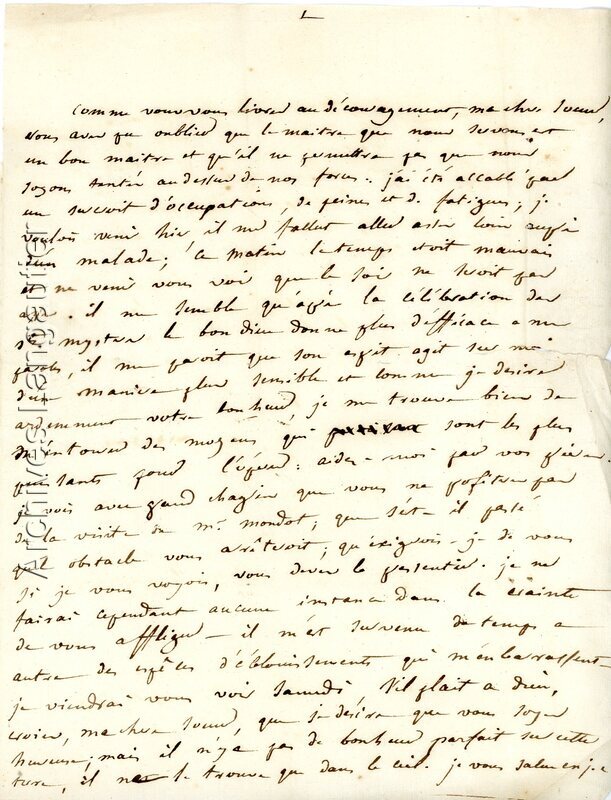 comme vous vous livrez au découragement, ma chere soeur,
vous avez pu oublier que le maitre que nous servons est
un bon maitre et qu'il ne permettra pas que nous
soyons tentés au dessus de nos forces. j'ai été accablé par
un surcroit d'occupations, de peines et de fatigues; je
voulois venir hier il me fallut aller assez loin auprès
d'un malade; ce matin le temps etoit mauvais
et ne venir vous voir que le soir ne seroit pas
il me semble qu'après la célébration des
sts mysteres le bon dieu donne plus d'efficace a mes
paroles, il me paroit que son esprit agit sur moi
d'une maniere plus sensible et comme je desire
ardemment votre bonheur je me trouve bien de
m'entourer des moyens qui sont les plus
puissants pour l'opérer: aidez-moi par vos prieres.
je vois avec grand chagrin que vous ne profitez pas
de la visite de mr. mondot; que s'est-il passé
quel obstacle vous arrêteroit; qu'exigerois-je de vous
si je vous voyois, vous devez le pressentir. je ne
fairai cependant aucune instance dans la crainte
de vous affliger - il m'est survenu de temps a
autre des espèces d'éblouissements qui m'embarrassent
je viendrai vous voir samedi, s'il plait a dieu,
croiez, ma chere soeur, que je désire que vous soyez
heureuse; mais il n'y a pas de bonheur parfait sur cette
terre, il ne se trouve que dans le ciel. je vous salue en j.c
Archives Langautier